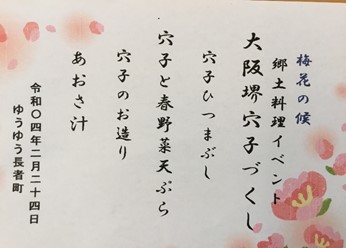 梅花の候
郷土料理イベント
大阪堺穴子づくし
穴子ひつまぶし
穴子と春野菜天ぷら
穴子のお造り
あおさ汁
令和〇四年二月二十四日
ゆうゆう長者町